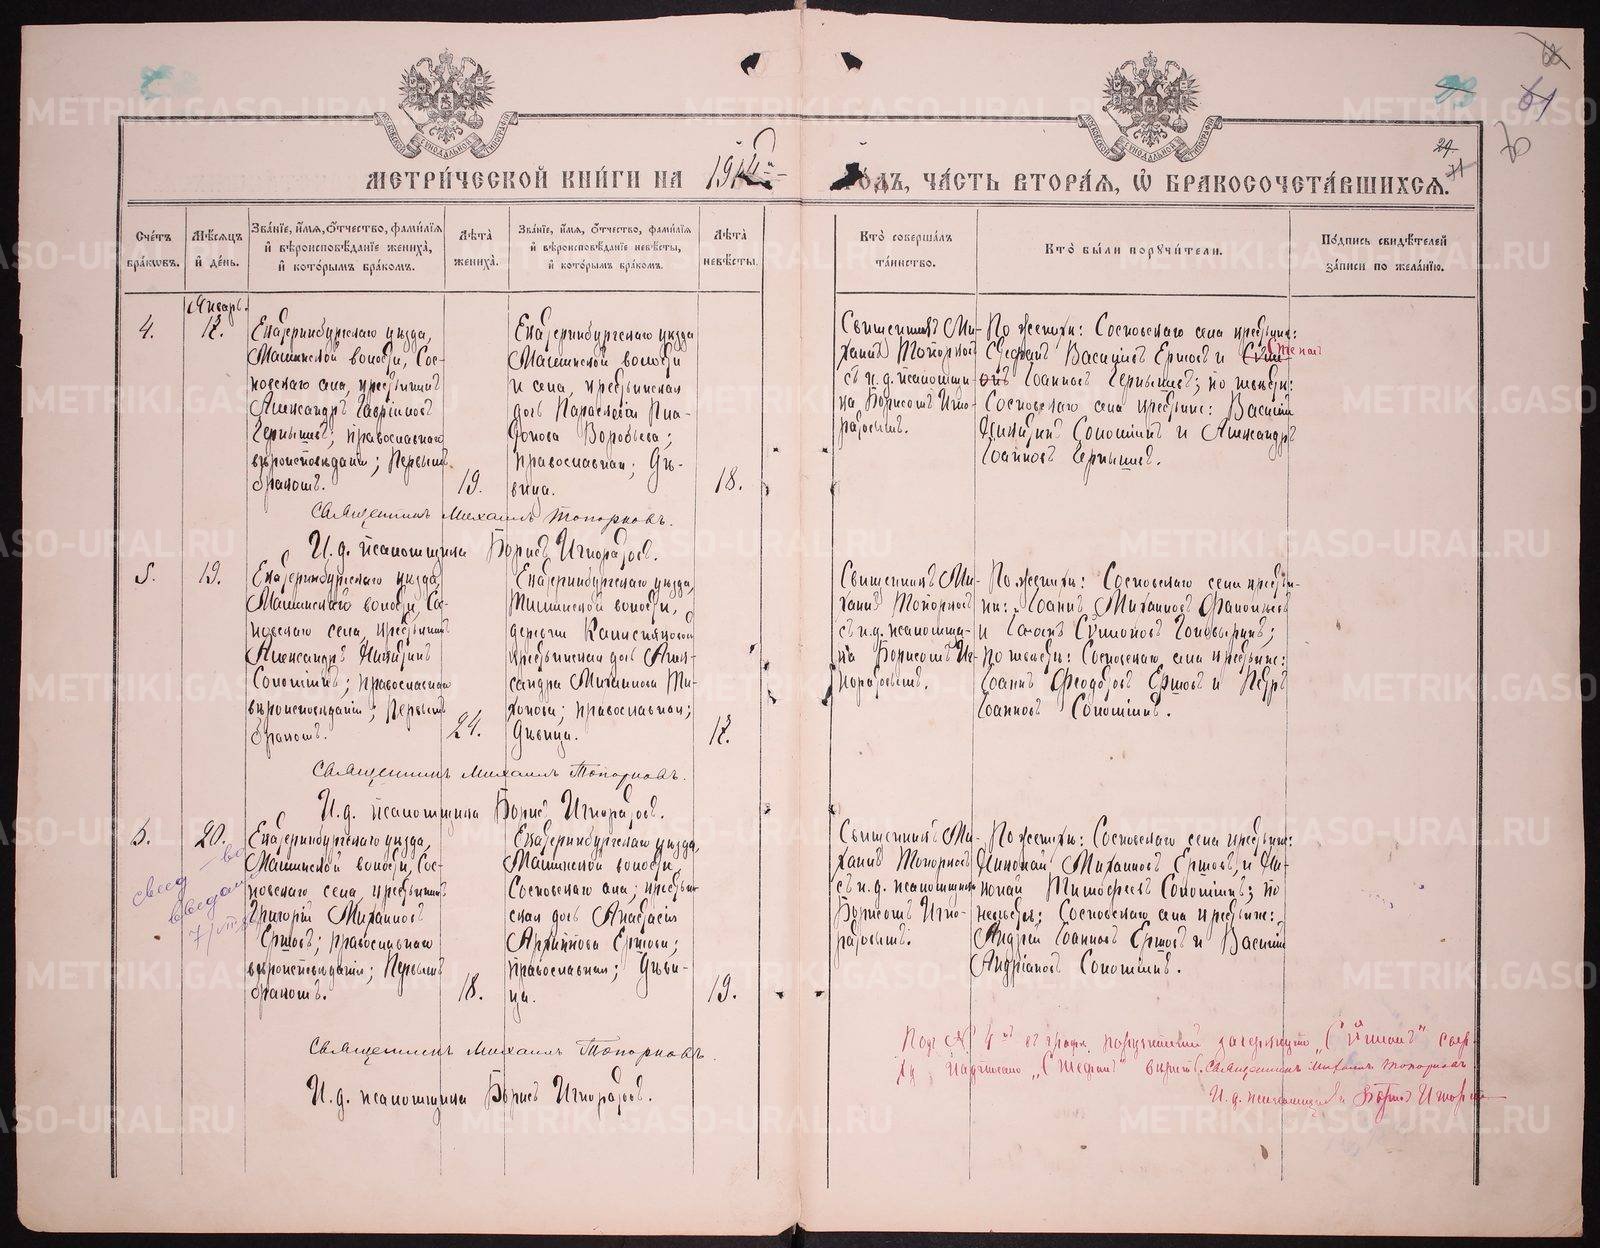 МЕТРИ́ЧЕСКОЙ КНИ́ГИ НА 1914й ГОДЪ, ЧА́СТЬ ВТОРА́Я, Ѡ БРАКОСОЧЕТА́ВШИХСЯ.
Сче́тъ бра́ковъ.
Мѣ́сяцъ и де́нь.
Зва́нїе, и́мя, о́тчество, фами́лїя и вѣроисповѣ́данїе жениха́, и кото́рымъ бра́комъ.
Лѣ́та жениха́.
Зва́нїе, и́мя, о́тчество, фами́лїя и вѣроисповѣ́данїе невѣ́сты, и кото́рымъ бра́комъ.
Лѣ́та невѣ́сты.
Кто̀ соверша́лъ та́инство.
Кто̀ бы́ли поручи́тели.
По́дпись свидѣ́телей за́писи по жела́нїю.
Январь.
4.
17.
Екатеринбургскаго уѣзда,
Маминской волости, Сос-
новскаго села, крестьянинъ
Александръ Гавріиловъ
Чернышевъ; православнаго
вѣроисповѣданія; Первымъ
бракомъ.
19.
Екатеринбургскаго уѣзда
Маминской волости
и села, крестьянская
дочь Параскевія
Воробьева;
православная; дѣ-
вица.
18.
Священникъ Ми-
хаилъ Топорковъ
съ и. д. псаломщи-
ка Борисомъ Игно-
ратовымъ.
По женихѣ: Сосновскаго села крестьяне:
Стефанъ Васильевъ Ершовъ и Сѵме-
онъ Іоанновъ Чернышевъ; по невѣстѣ:
Сосновскаго села крестьяне: Василій
Никитинъ Соломеинъ и Александръ
Іоанновъ Чернышевъ.
Священникъ Михаилъ Топорковъ.
И. д. псаломщика Борисъ Игноратовъ.
5.
19.
Екатеринбургскаго уѣзда,
Маминской волости, Со-
новскаго села, крестьянинъ
Александръ Никитинъ
Соломеинъ; православнаго
вѣроисповѣданія; Первымъ
бракомъ.
24.
Екатеринбургскаго уѣзда,
волости,
деревни
крестьянская дочь Алек-
сандра Михаилова Ти-
хонова; православная;
дѣвица.
17.
Священникъ Ми-
хаилъ Топорковъ
съ и. д. псаломщи-
ка Борисомъ Иг-
норатовымъ.
По женихѣ: Сосновскаго села крестья-
не: Іоаннъ Михаиловъ
и Іоаннъ Сѵмеоновъ
По невѣстѣ: Сосновскаго села крестьяне:
Іоаннъ Феодотовъ Ершовъ и Петръ
Іоанновъ Соломеинъ.
Священникъ Михаилъ Топорковъ.
И. д. псаломщика Борисъ Игноратовъ.
6.
20.
Екатеринбургскаго уѣзда,
Маминской волости, Сос-
новскаго села, крестьянинъ
Григорій Михаиловъ
Ершовъ; православнаго
вѣроисповѣданія; Первымъ
бракомъ.
18.
Екатеринбургскаго уѣзда,
Маминской волости
Сосновскаго села, крестьян-
ская дочь Анастасія
Архиппова Ершова;
православная; дѣви-
ца.
19.
Священникъ Ми-
хаилъ Топорковъ
съ и. д. псаломщика
Борисомъ Игно-
ратовымъ.
По женихѣ: Сосновскаго села крестьяне:
Николай Михаиловъ Ершовъ, и Ни-
колай Тимофеевъ Соломеинъ; по
невѣстѣ: Сосновскаго села крестьяне:
Андрей Іоанновъ Ершовъ и Василій
Андріановъ Соломеинъ.
Священникъ Михаилъ Топорковъ.
И. д. псаломщика Борисъ Игноратовъ.
Подъ № 4мъ въ графѣ поручителей зачеркнуто „Сѵмеонъ“ свер-
ху надписано „Стефанъ“ вѣрить. Священникъ Михаилъ Топорковъ
И. д. псаломщика Борисъ Игнора